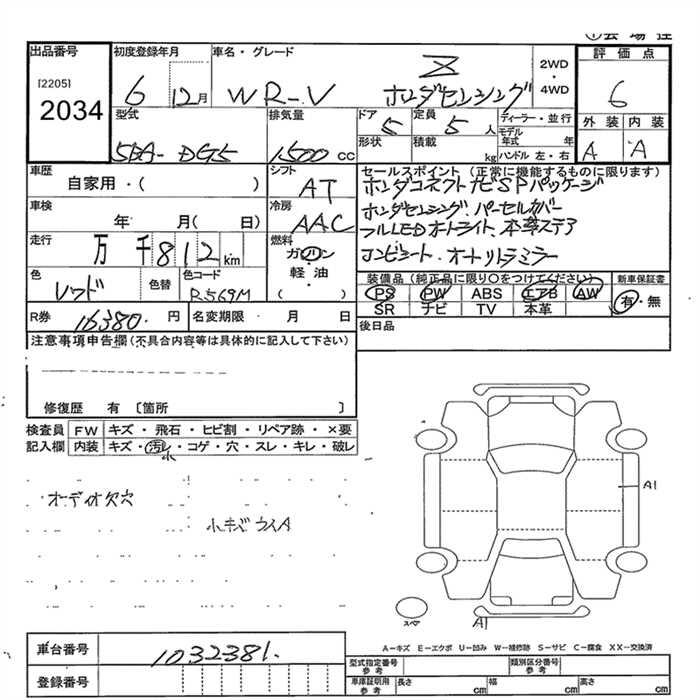 出品番号
[2205]
2034
初度登録年月
6 12月
車名・グレード
WR-V
Z
ホンダセンシング
2WD
・
4WD
評価点
6
外装 内装
A A
型式
5BA-DG5
排気量
1500 cc
ドア
5
形状
定員
5 人
積載
kg
ディーラー・並行
モデル年式 年
ハンドル 左・右
車歴
自家用・( )
シフト
AT
車検
年 月( 日)
冷房
AAC
走行
万 千 812 km
燃料
ガソリン
軽油
( )
色
レッド
色替
色コード
R569M
R券
16380. 円
名変期限 月 日
セールスポイント (正常に機能するものに限ります)
ホンダコネクトナビSPパッケージ
ホンダセンシング. パーセルカバー
フルLEDオートライト 本革ステア
コンビシート. オートリトラミラー
装備品(純正品に限り〇をつけてください)
PS PW ABS エアB AW
SR ナビ TV 本革
新車保証書
有・無
後日品
注意事項申告欄(不具合内容等は具体的に記入して下さい)
修復歴 有 〔箇所 〕
検査員記入欄
FW キズ・飛石・ヒビ割・リペア跡・×要
内装 キズ・汚レ・コゲ・穴・スレ・キレ・破レ
小
オーディオ欠穴
小キズ
A1
スペ
A1
A-キズ E-エクボ U-凹み W-補修跡 S-サビ C-腐食 XX-交換済
車台番号
1032381.
登録番号
型式指定番号 参考
類別区分番号 参考
車庫証明用 参考
長さ cm
幅 cm
高さ cm